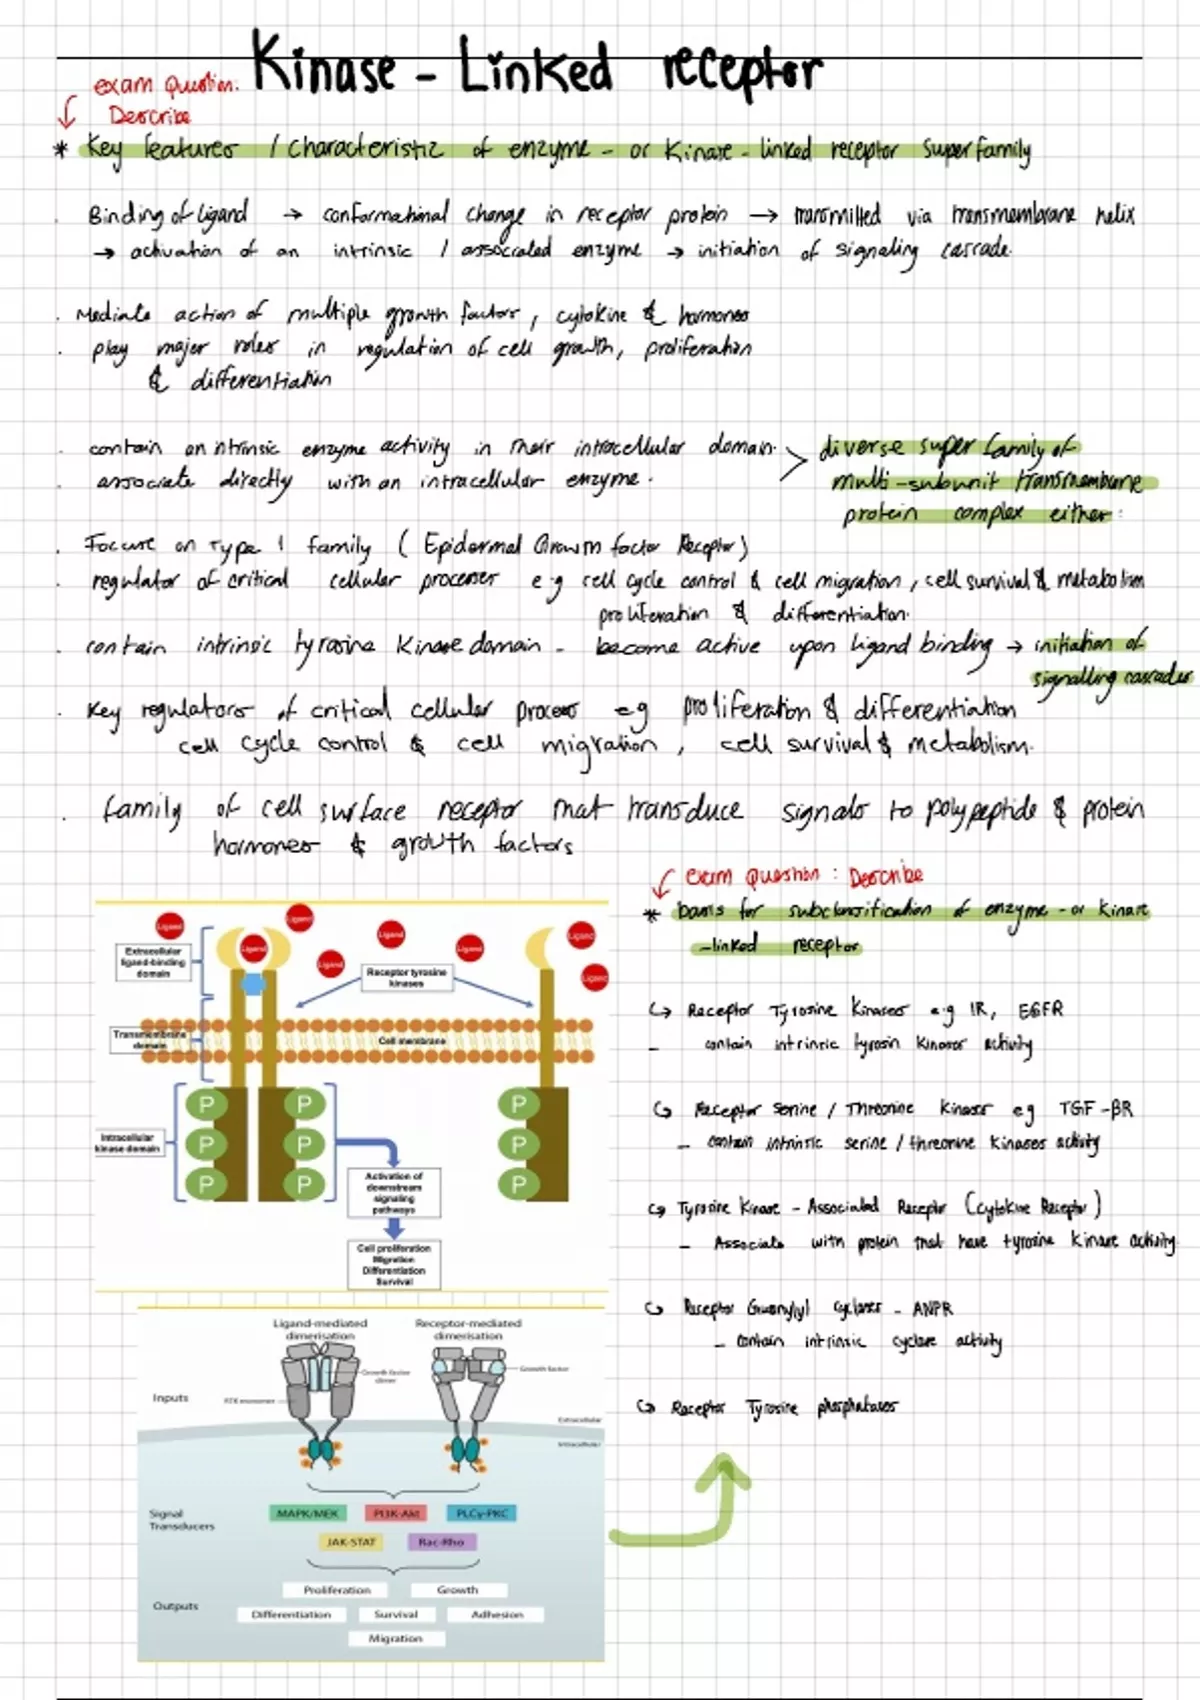 Kinase - Linked receptor
exam Question:
Describe
* Key features / characteristic of enzyme - or Kinase - linked receptor superfamily
. Binding of ligand → conformational change in receptor protein → transmitted via transmembrane helix
→ activation of an intrinsic / associated enzyme → initiation of signaling cascade.
. Mediate action of multiple growth factors, cytokine & hormones
. play major roles in regulation of cell growth, proliferation
& differentiation
. contain an intrinsic enzyme activity in their intracellular domain.
. associate directly with an intracellular enzyme.
> diverse super family of
multi-subunit transmembrane
protein complex either:
. Focuse on Type 1 family ( Epidermal Growth factor Receptor)
. regulator of critical cellular processes e.g cell cycle control & cell migration, cell survival & metabolism
proliferation & differentiation.
. contain intrinsic tyrosine kinase domain - become active upon ligand binding → initiation of
signalling cascades
. Key regulators of critical cellular process eg proliferation & differentiation
cell cycle control & cell migration, cell survival & metabolism.
. family of cell surface receptor that transduce signals to polypeptide & protein
hormones & growth factors
exam Question : Describe
* basis for subclassification of enzyme - or kinase
-linked receptor
↪ Receptor Tyrosine Kinases e.g IR, EGFR
- contain intrinsic tyrosin kinases activity
↪ Receptor serine / Threonine kinases eg TGF-βR
- contain intrinsic serine / threonine kinases activity
↪ Tyrosine Kinase - Associated Receptor (cytokine Receptor)
- Associate with protein that have tyrosine kinase activity
↪ Receptor Guanylyl cyclases - ANPR
- contain intrinsic cyclase activity
↪ Receptor Tyrosine phosphatases
Ligand
Ligand
Ligand
Ligand
Ligand
Ligand
Ligand
Ligand
Extracellular
ligand-binding
domain
Receptor tyrosine
kinases
Transmembrane
domain
Cell membrane
P P P
P P P
P P P
Intracellular
kinase domain
Activation of
downstream
signaling
pathways
Cell proliferation
Migration
Differentiation
Survival
Ligand-mediated
dimerisation
Receptor-mediated
dimerisation
Growth factor
dimer
Growth factor
Inputs
RTK monomer
Extracellular
Intracellular
Signal
Transducers
MAPK/MEK PI3K-Akt PLCγ-PKC
JAK-STAT Rac-Rho
Outputs
Proliferation Growth
Differentiation Survival Adhesion
Migration